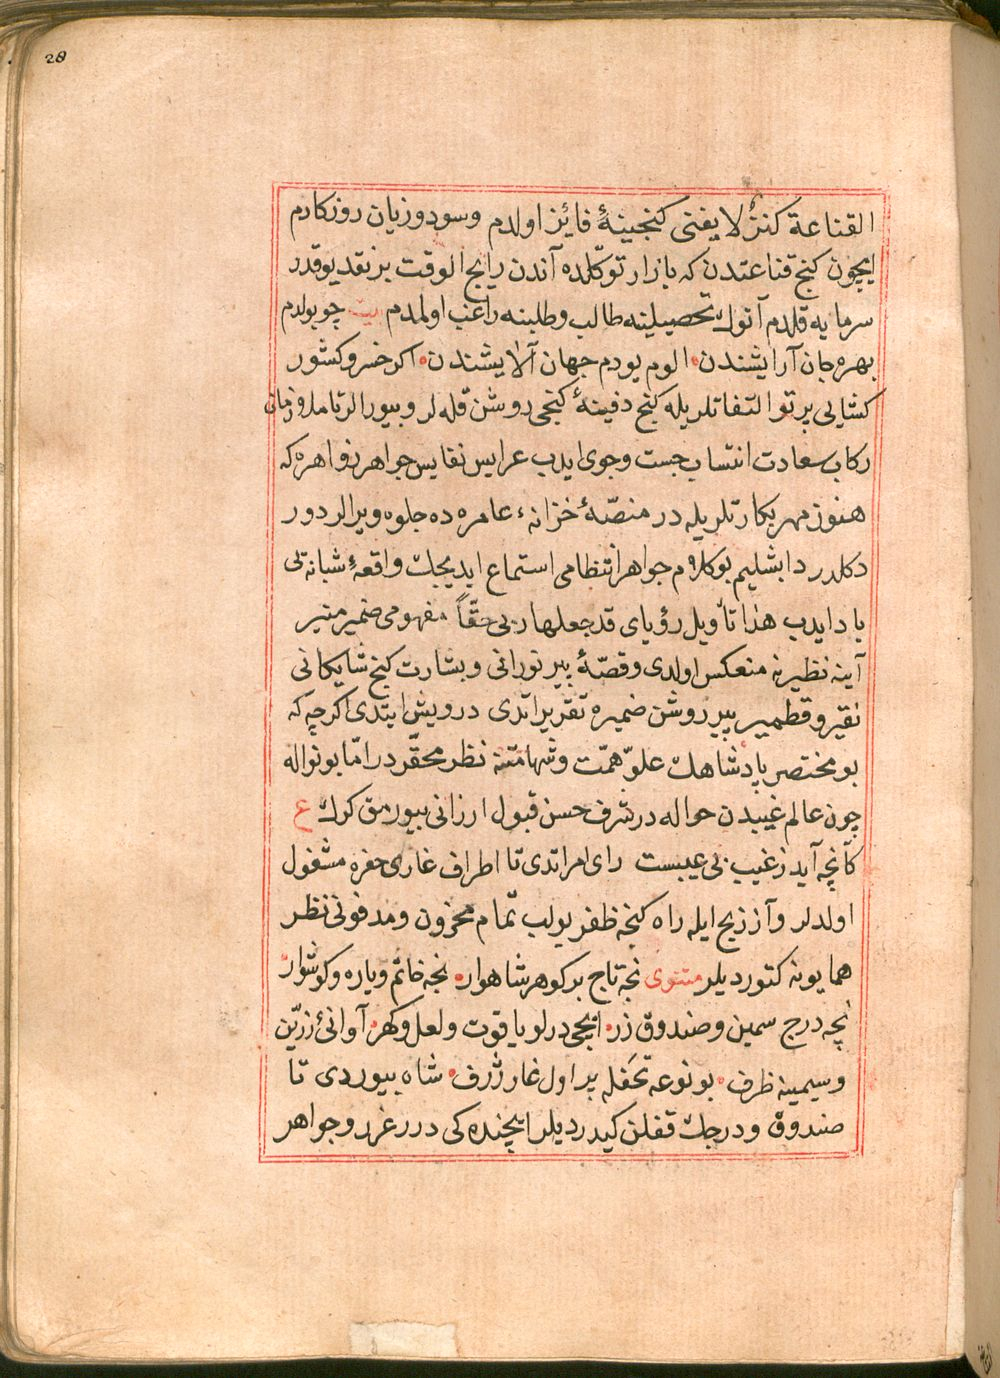 28
القناعة كنزٌ لا يفنى كنجينۀ فائز اولدم وسود وزيان روزكارم
ايچون كنج قناعتدن كه بازار توكلده آندن رايج الوقت بر نقد يوقدر
سرمايه قلدم آنوك تحصيلينه طالب وطلبنه راغب اولمدم بيت چو بولدم
بهره جان آرايشندن الوم يودم جهان آلايشندن اكر خسرو كشور
كشايى پرتو التفاتلريله كنج دفينۀ كنجى روشن قله لر وبيورالر تا ملازمانى
ركاب سعادت انتساب جست وجوى ايدب عرايس نفايس جواهر زواهره كه
هنوز مهر بكارتلريله در منصّۀ خزانه ء عامره ده جلوه ويرالر دور
دكلدر دابشليم بو كلام جواهر انتظامى استماع ايديجك واقعۀ شبانه تى
ياد ايدب هذا تأويل رؤياى قد جعلها ربى حقّاً مفهومى ضمير منير
آينه نظيرنه منعكس اولدى وقصّۀ پير نورانى وبشارت كنج شايكانى
نقير وقطمير پير روشن ضميره تقرير اتدى درويش ايتدى اكرچه كه
بو مختصر پادشاهك علوّ همّت وشهامتنه نظر محقّردر امّا بو نواله
چون عالم غيبدن حواله در شرف حسن قبول ارزانى بيورمق كرك ع
كآنچه آيد ز غيب بى عيبست راى امر اتدى تا اطراف غارى حفره مشغول
اولدلر وآز زيج ايله راه كنجه ظفر بولب تمّام مخزون ومدفونى نظر
همايونه كتورديلر مثنوى نجه تاج بر كوهر شاهوار نجه خاتم وياره وكوشوار
نچه درج سمين وصندوق زر ايچى درلو ياقوت ولعل وكهر آوانئ زرّين
وسيمينه ظرف بو نوعه تحفله بر اول غار ژرف شاه بيوردى تا
صندوق ودرجك قفلن كيدرديلر ايچنده كى درر غرر وجواهر